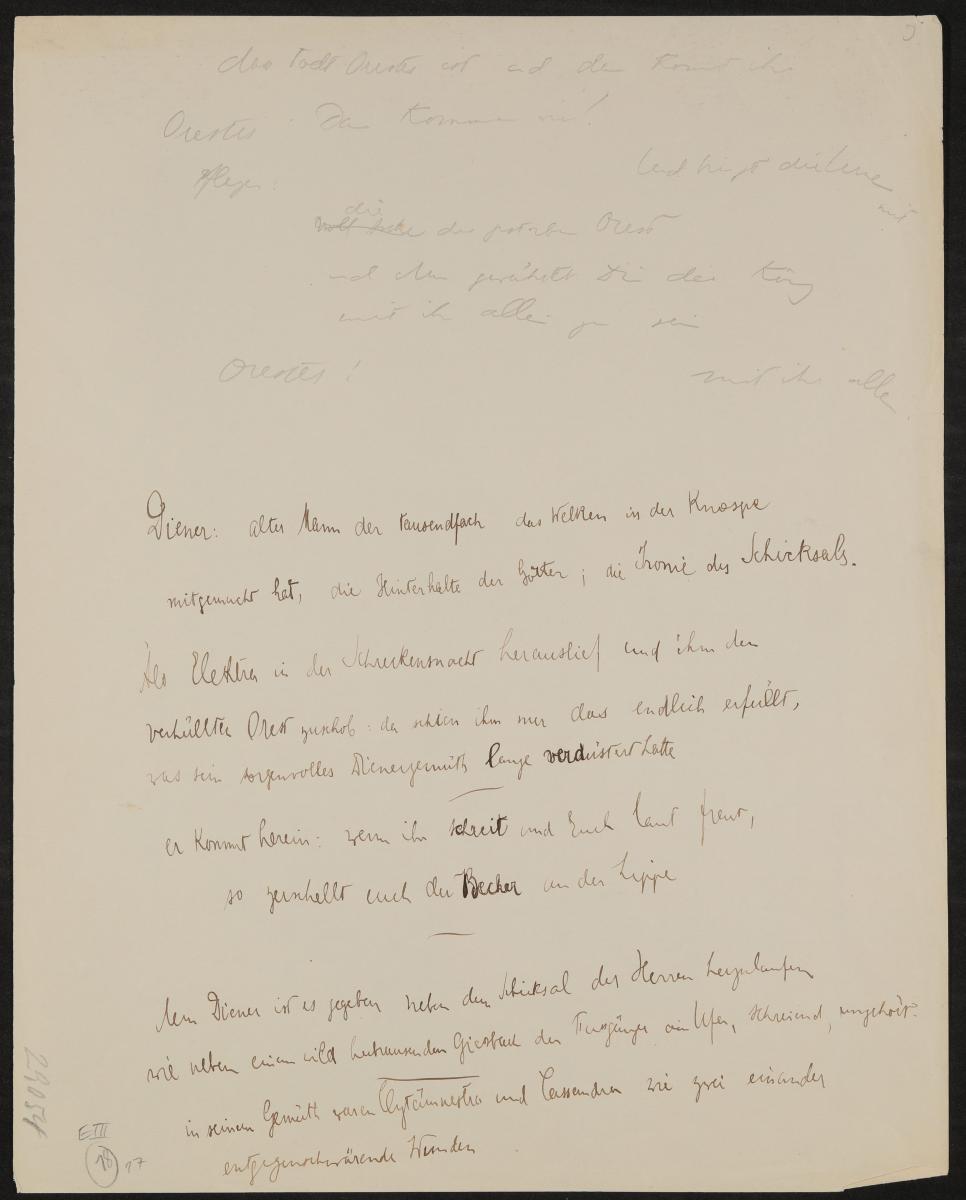 das todt Orestes ist und der kommt ihr
Orestes Da kommen wir!
Pfleger:
die
der Orest
und dann gewährt Dir der König
mit ihr allein zu sein
Orestes! mit ihr allein
Diener: alter Mann der tausendfach das Welken in der Knospe
mitgemacht hat, die Hinterhalte der Götter; die Ironie des Schicksals.
Als Elektra in der Schreckensnacht herauslief und ihm den
verhüllten Orest zuschob: da schien ihm nur das endlich erfüllt,
was sein sorgenvolles Dienergemüth lange verdüstert hatte
er kommt herein: wenn ihr schreit und Euch laut freut,
so zerschellt euch der Becher an der Lippe
dem Diener ist es gegeben neben dem Schicksal der Herren herzulaufen
wie neben einem wild hinbrausenden Giessbach der Fussgänger am Ufer, schreiend, ungehört.
in seinem Gemüth waren Clytämnestra und Cassandra wie zwei einander
entgegenschwärende Wunden
E III
18 17